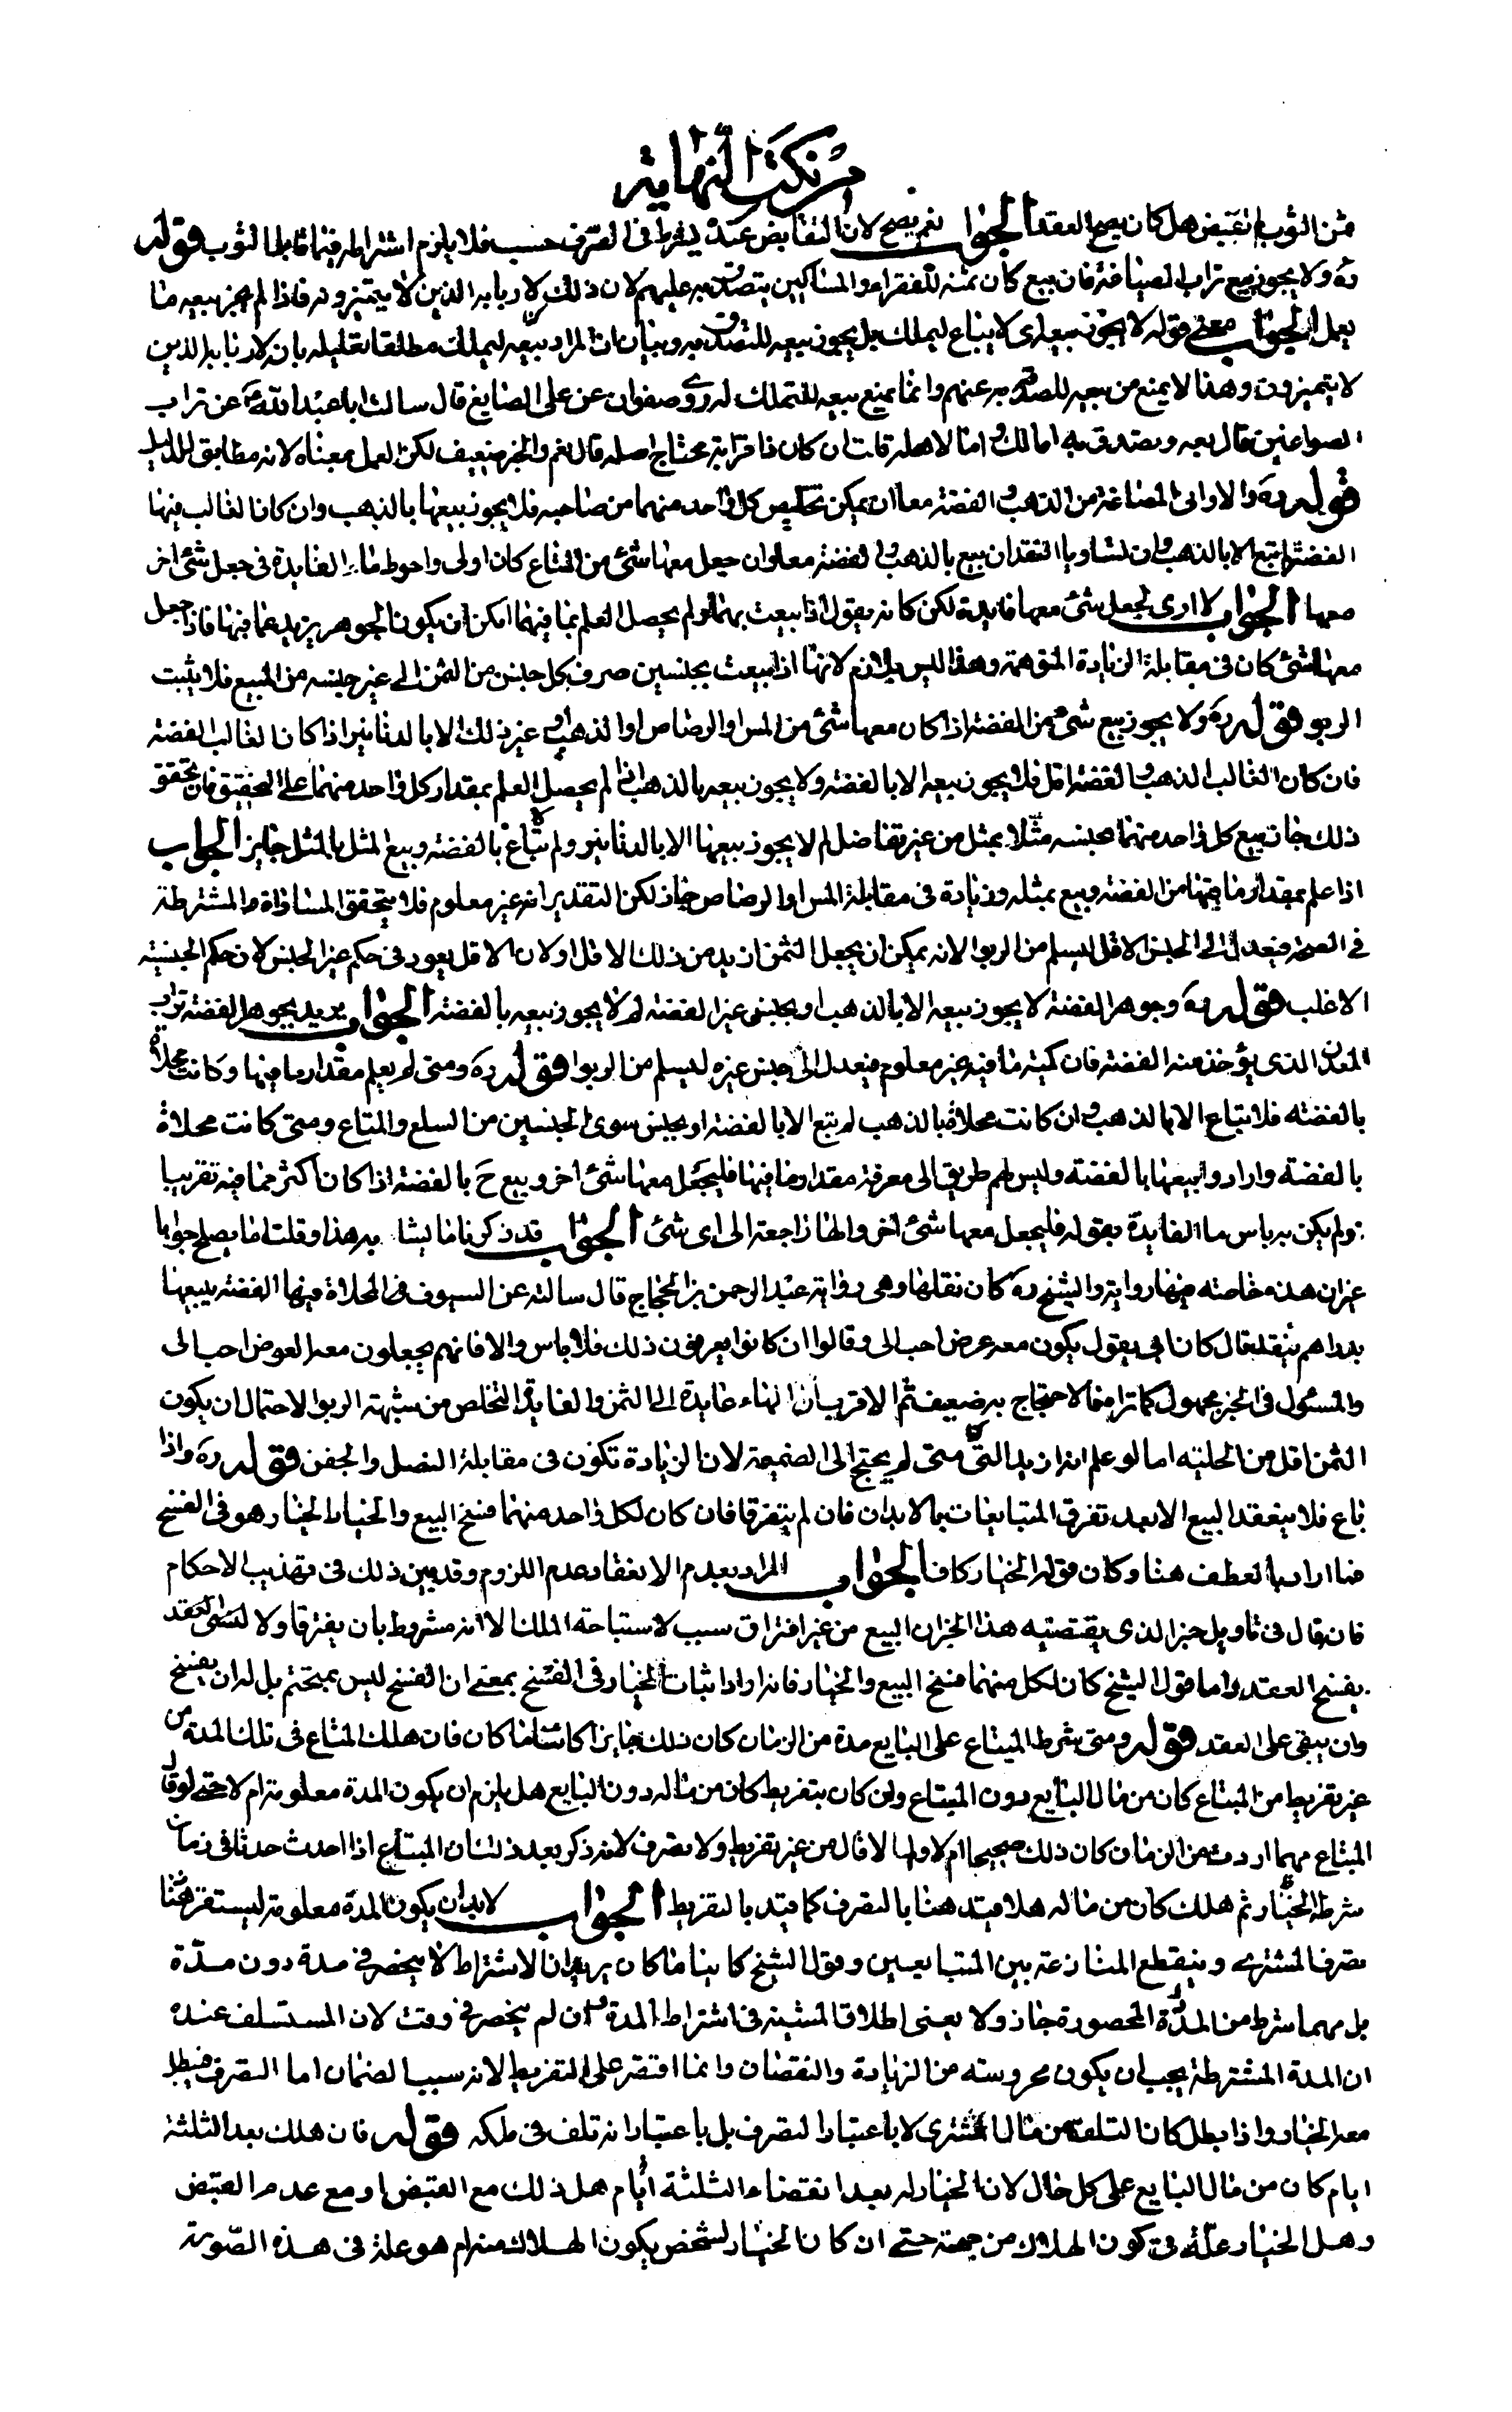 من نكت النهاية
ثمن الثوب لم تقبض هل كان يصح العقد الجواب نعم يصح لان التقابض عندنا يشترط في الصرف حسب فلا يلزم اشتراطه فيما قابل الثوب قوله
ره ولا يجوز بيع تراب الصياغة فان بيع كان ثمنه للفقراء والمساكين يتصدق به عليهم لان ذلك لاربابه الذين لا يتميزون فاذا لم يجز بيعه ما
يعمل الجواب معنى قوله لا يجوز بيعه اى لا يباع ليملك بل يجوز بيعه للتصدق به وبيان ان المراد بيعه ليملك مطلقا تعليله بان لاربابه الذين
لا يتميزون وهذا لا يمنع من بيعه للصدقة به عنهم وانما يمنع بيعه للتملك له روى صفوان عن على الصايغ قال سالت ابا عبد الله ع عن تراب
الصواغين قال بعه وتصدق به اما لك واما لاهله قلت ان كان ذا قرابة محتاج اصله قال نعم والخبر ضعيف لكن العمل بمعناه لانه مطابق للدليل
قوله ره والاوانى المصاغة من الذهب والفضة معا ان يمكن تخليص كل واحد منهما من صاحبه فلا يجوز بيعها بالذهب وان كان الغالب فيها
الفضة لم تبع الا بالذهب وان تساويا النقدان بيع بالذهب والفضة معا وان جعل معها شئ من المتاع كان اولى واحوط ما الفايدة في جعل شئ اخر
معها الجواب لا ارى لجعل شئ معها فايدة لكن كانه يقول اذا بيعت بهما ولم يحصل العلم بما فيهما امكن ان يكون الجوهر يزيد عما فيها فاذا جعل
معها شئ كان في مقابلة الزيادة المتوهمة وهذا ليس بلازم لانها اذا بيعت بجنسين صرف كل جنس من الثمن الى غير جنسه من المبيع فلا يثبت
الربو قوله ره ولا يجوز بيع شئ من الفضة اذا كان معها شئ من المس او الرصاص او الذهب او غير ذلك الا بالدنانير اذا كان الغالب الفضة
فان كان الغالب الذهب والفضة اقل فلا يجوز بيعه الا بالفضة ولا يجوز بيعه بالذهب اذا لم يحصل العلم بمقدار كل واحد منهما على التحقيق فان تحقق
ذلك جاز بيع كل واحد منهما بجنسه مثلا بمثل من غير تفاضل لم لا يجوز بيعها الا بالدنانير ولم تباع بالفضة وبيع المثل بالمثل جايز الجواب
اذا علم بمقدار ما فيها من الفضة وبيع بمثله وزيادة في مقابلة المس او الرصاص جاز لكن التقدير انه غير معلوم فلا يتحقق المساواة المشترطة
في الصحة فيعدل الى الجنس الاقل ليسلم من الربوا لانه يمكن ان يجعل الثمن ازيد من ذلك الاقل او لان الاقل يعود في حكم غير الجنس لان حكم الجنسية
الاغلب قوله ره وجوهر الفضة لا يجوز بيعه الا بالذهب او بجنس غير الفضة لم لا يجوز بيعه بالفضة الجواب يريد بجوهر الفضة تراب
المعدن الذى يؤخذ منه الفضة فان كمية ما فيه غير معلوم فيعدل الى جنس غيره ليسلم من الربوا قوله ره ومتى لم يعلم مقدار ما فيها وكانت محلاة
بالفضة فلا يتباع الا بالذهب وان كانت محلاة بالذهب لم تبع الا بالفضة او بجنس سوى الجنسين من السلع والمتاع ومتى كانت محلاة
بالفضة وارادوا بيعها بالفضة وليس لهم طريق الى معرفة مقدار ما فيها فليجعل معها شئ اخر وبيع ح بالفضة اذا كان اكثر مما فيه تقريبا
ولم يكن به باس ما الفايدة بقوله فليجعل معها شئ اخر والها راجعة الى اى شئ الجواب قد ذكرنا ما يشابه هذا وقلت ما يصلح جوابا
غير ان هذه خاصة فيها رواية والشيخ ره كان نقلها وهى رواية عبد الرحمن بن الحجاج قال سالته عن السيوف المحلاة فيها الفضة يبيعها
بدراهم بنقد قال كان ابي يقول يكون معه عرض احب الى وقالوا ان كانوا يعرفون ذلك فلا باس والا فانهم يجعلون معه العوض احب الى
والمسئول في الخبر مجهول كما ترى فالاحتجاج به ضعيف ثم الاقرب ان الهاء عايدة الى الثمن والفايدة التخلص من شبهة الربو لاحتمال ان يكون
الثمن اقل من الحلية اما لو علم انه ازيد لم يحتج الى الضميمة لان الزيادة تكون في مقابلة النصل والجفن قوله ره واذا
باع فلا ينعقد البيع الا بعد تفرق المتبايعان بالابدان فان لم يتفرقا فان كان لكل واحد منهما فسخ البيع والخيار الخيار هو في الفسخ
فما اراد بالعطف هنا وكان قوله الخيار كافيا الجواب المراد بعدم الانعقاد عدم اللزوم وقد بين ذلك في تهذيب الاحكام
فان قال في تاويل خبر الذى يقتضيه هذا الخبر ان البيع من غير افتراق سبب لاستباحة الملك الا انه مشروط بان يفترقا ولا العقد
يفسخ العقد واما قول الشيخ كان لكل منهما فسخ البيع والخيار فانه اراد اثبات الخيار في الفسخ بمعنى ان الفسخ ليس بمتحتم بل له ان يفسخ
وان يبقى على العقد قوله ومتى شرط المبتاع على البايع مدة من الزمان كان ذلك جايزا كائنا ما كان فان هلك المتاع في تلك المدة من
غير تفريط من المبتاع كان من مال البايع دون المبتاع وان كان بتفريط كان من ماله دون البايع هل يلزم ان يكون المدة معلومة ام لا حتى لو قال
المبتاع مهما اردت من الزمان كان ذلك صحيحا ام لا ولم لا قال من غير تفريط ولا تصرف لانه ذكر بعد ذلك ان المبتاع اذا احدث حدثا في زمان
شرطه الخيار ثم هلك كان من ماله هلا قيد هنا بالتصرف كما قيد بالتفريط الجواب لابد ان يكون المدة معلومة ليستقر هنا
تصرف المشترى وينقطع المنازعة بين المتبايعين وقول الشيخ كاينا ما كان يريد ان الاشتراط لا ينحصر في مدة دون مدة
بل مهما شرط من المدة المحصورة جاز ولا يعنى اطلاق المشية في اشتراط المدة وان لم ينحصر في وقت لان المستسلف عنده
ان المدة المشترطة يجب ان يكون محروسة من الزيادة والنقصان وانما اقتصر على التفريط لانه سبب الضمان اما التصرف فيبطل
معه الخيار واذا بطل كان التلف من مال المشترى لا باعتبار التصرف بل باعتبار انه تلف في ملكه قوله فان هلك بعد الثلثة
ايام كان من مال البايع على كل حال لان الخيار له بعد انقضاء الثلثة ايام هل ذلك مع القبض او مع عدم القبض
وهل الخيار علة في كون الهلاك من جهته حتى ان كان الخيار لشخص يكون الهلاك منه ام هو علة في هذه الصورة